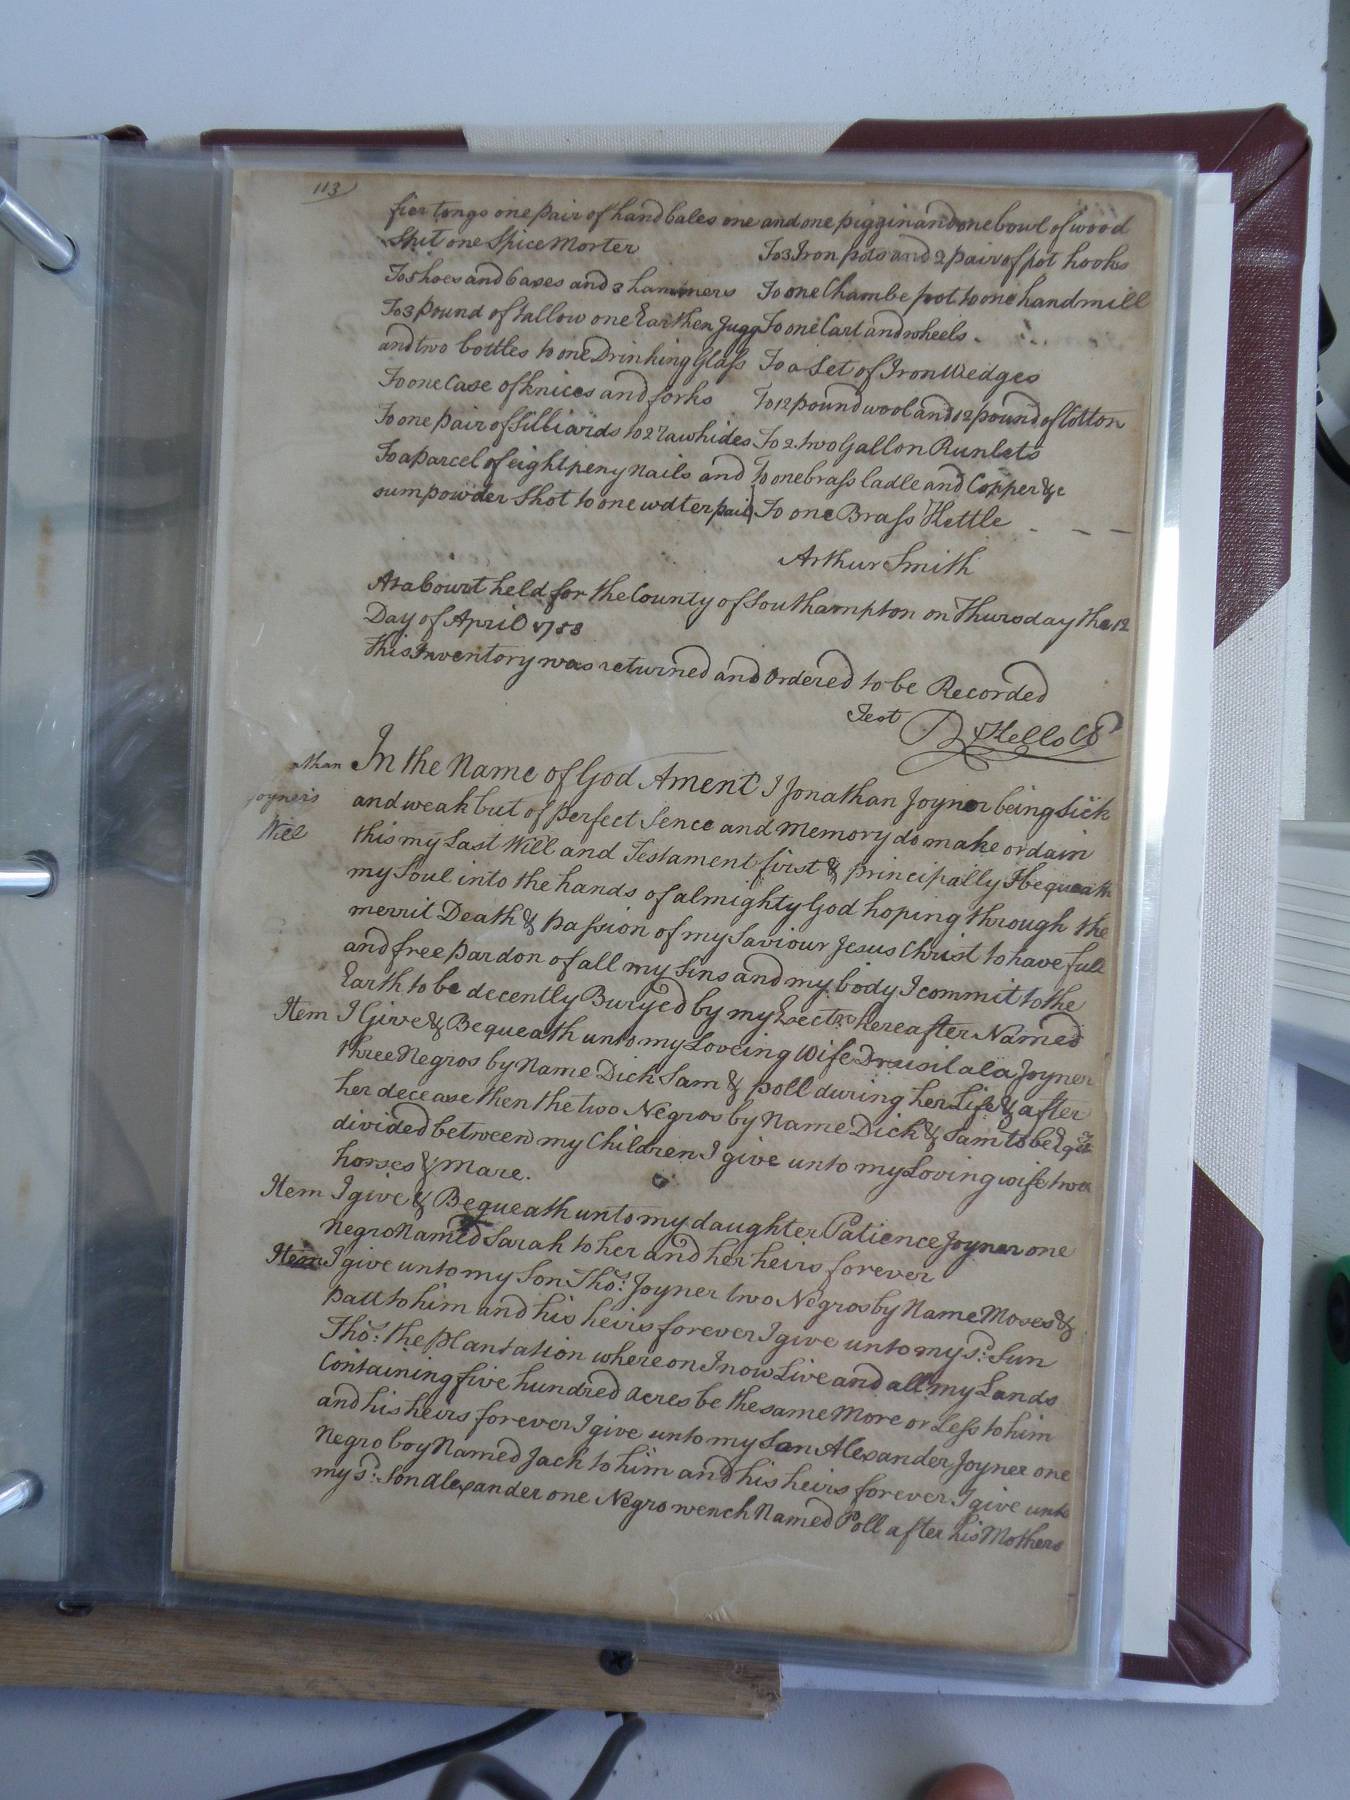 113
fier tongs one pair of hand bales one
Spit one Spice Morter
To 5 hoes and 6 axes and 3 hammers
To 3 pound of tallow one Earthen Jugg
and two bottles to one Drinking Glass
To one Case of knices and forks
To one pair of Silliards to 27 rawhides
To a parcel of eight peny Nails and
sum powder Shot to one water pail
and one piggin and one bowl of wood
To 3 Iron pots and 2 pair of pot hooks
To one Chambe pot to one handmill
To one Cart and wheels
To a Set of Iron Wedges
To 12 pound wool and 12 pound of Cotton
To 2 two Gallon Runlets
To one brass ladle and Copper &c
To one Brass Kettle
Arthur Smith
At a Court held for the County of Southampton on Thursday the 12
Day of April
This Inventory was returned and Ordered to be Recorded
Test
athan
Joyners
Will
In the Name of God Ament I Jonathan Joyner being Sick
and weak but of perfect Sence and Memory do make ordain
this my Last Will and Testament first & principally I bequeath
my Soul into the hands of almighty God hoping through the
merrit Death & passion of my Saviour Jesus Christ to have full
and free pardon of all my Sins and my body I commit to the
Earth to be decently Buryed by my hereafter Named
Item I Give & Bequeath unto my Loveing Wife Drusilala Joyner
three Negros by Name Dick Sam & poll during her Life & after
her decease then the two Negros by Name Dick & Sam to be
divided between my Children I give unto my Loving wife two
horses & Mare.
Item I give & Bequeath unto my daughter Patience Joyner one
Negro Named Sarah to her and her heirs forever
Item I give unto my Son Thos. Joyner two Negros by Name Moses &
patt to him and his heirs forever I give unto my sd. Sun
Thos: the plantation whereon I now Live and all my Lands
Containing five hundred acres be the same More or Less to him
and his heirs forever I give unto my Son Alexander Joyner one
Negro boy Named Jack to him and his heirs forever I give unto
my sd: Son Alexander one Negro wench Named Poll after his Mothers